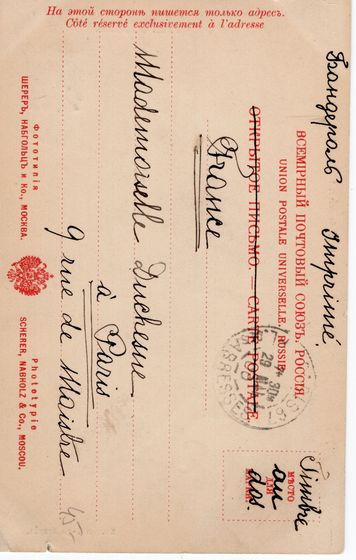 На этой сторонѣ пишется только адресъ.
Côté réservé exclusivement à l'adresse
Бандероль Imprimé
ВСЕМІРНЫЙ ПОЧТОВЫЙ СОЮЗЪ, РОССІЯ.
UNION POSTALE UNIVERSELLE, RUSSIE
ОТКРЫТОЕ ПИСЬМО. — CARTE POSTALE
France
Mademoiselle Ducheme
à Paris
9 rue de Maistre
45
Timbre
au
dos.
МѢСТО
ДЛЯ
МАРКИ
7 30
29
Фототипія
ШЕРЕРЪ, НАБГОЛЬЦЪ и Ко., МОСКВА.
Phototypie
SCHERER, NABHOLZ & Co., MOSCOU.